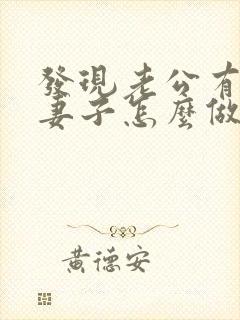 發現老公有
妻子怎麼做
黃德安